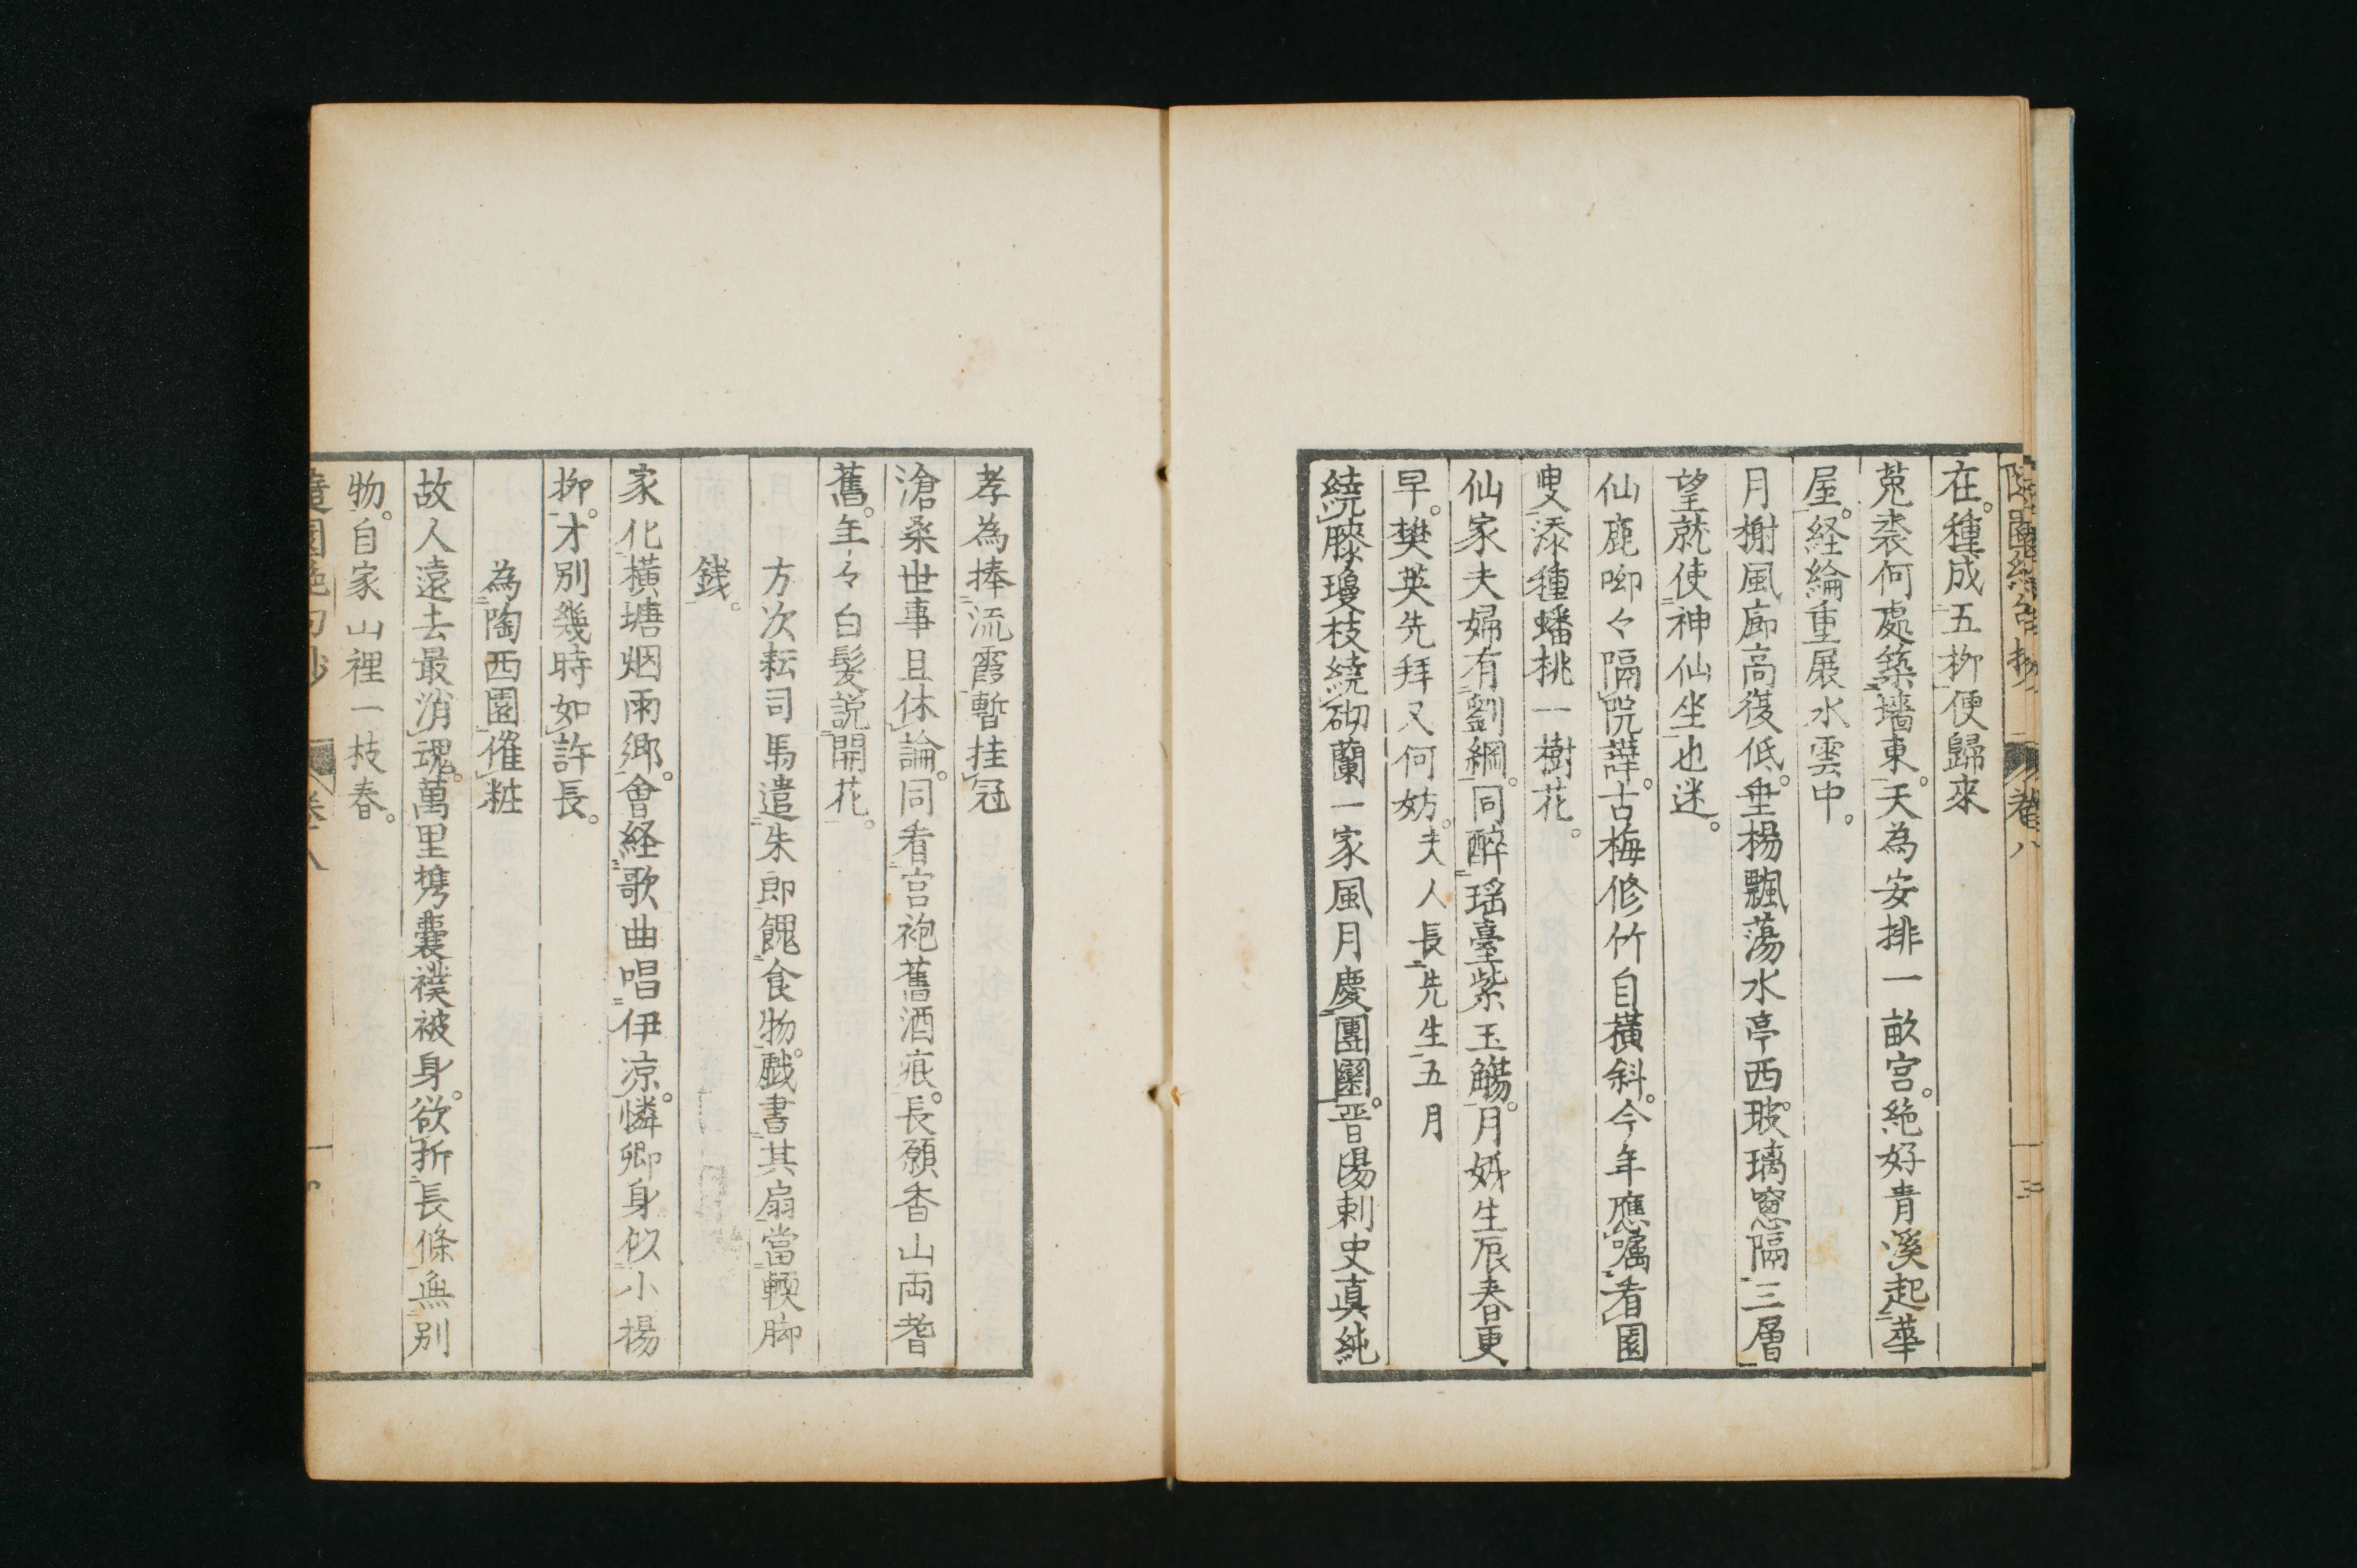 隨園絶句抄 卷八 三
在。種成五柳便歸來
菟裘何處築墻東。天為安排一畝宮。絶好青溪起華
屋。経綸重展水雲中。
月榭風廊高復低。垂楊飄蕩水亭西。玻璃窓隔三層
望。就使神仙坐也迷。
仙鹿呦々隔院譁。古梅修竹自橫斜。今年應囑看園
叟。添種蟠桃一樹花。
仙家夫婦有劉綱。同醉瑤臺紫玉觴。月姊生辰春更
早。樊英先拜又何妨。夫人長先生五月
繞膝瓊枝繞砌蘭一家風月慶團圞。晋陽刺史真純
孝為捧流霞暫挂冠
滄桑世事且休論。同看宮袍舊酒痕。長願香山両耆
舊。年々白髪説開花。
方次耘司馬遣朱郎餽食物。戯書其扇當輭脚
錢。
家化橫塘烟雨鄉。會経歌曲唱伊凉。憐卿身似小楊
柳。才別幾時如許長。
為陶西園催粧
故人遠去最消魂。萬里携囊襆被身。欲折長條無別
物。自家山裡一枝春。
隨園絶句抄 卷八